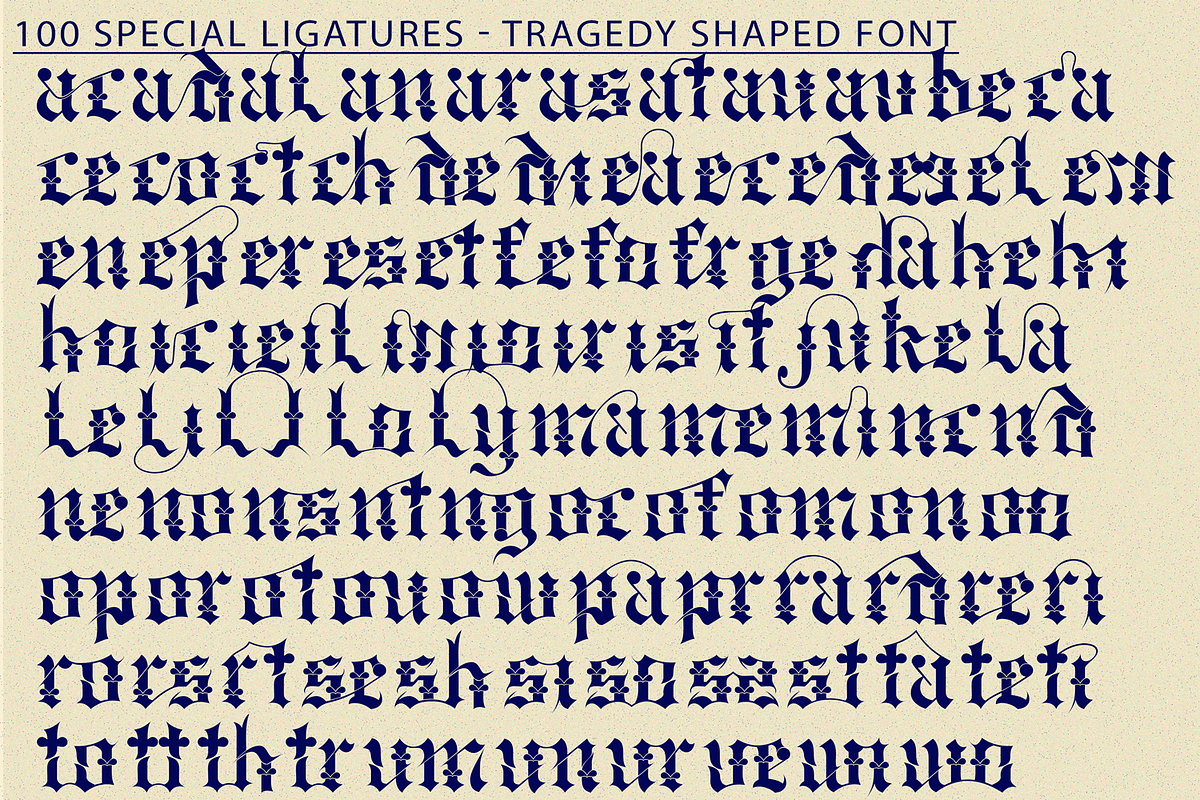 100 SPECIAL LIGATURES - TRAGEDY SHAPED FONT
ac ad al an ar as at au av be ca
ce co ct ch de di ea ec ed ee el em
en ep er es et fe fo fr ge ha he hi
ho ic ie il in io ir is it ju ke la
le li ll lo ly ma me mi nc nd
ne no ns nt ng oc of om on oo
op or ot ou ow pa pr ra rd re ri
ro rs rt se sh si so ss st ta te ti
to tt th tr um un ur ve wi wo